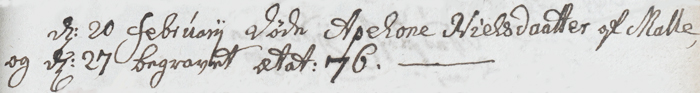 d: 20 februarij døde Apelone Nielsdaatter af Malle,
og d: 27 begravet ætat: 76.